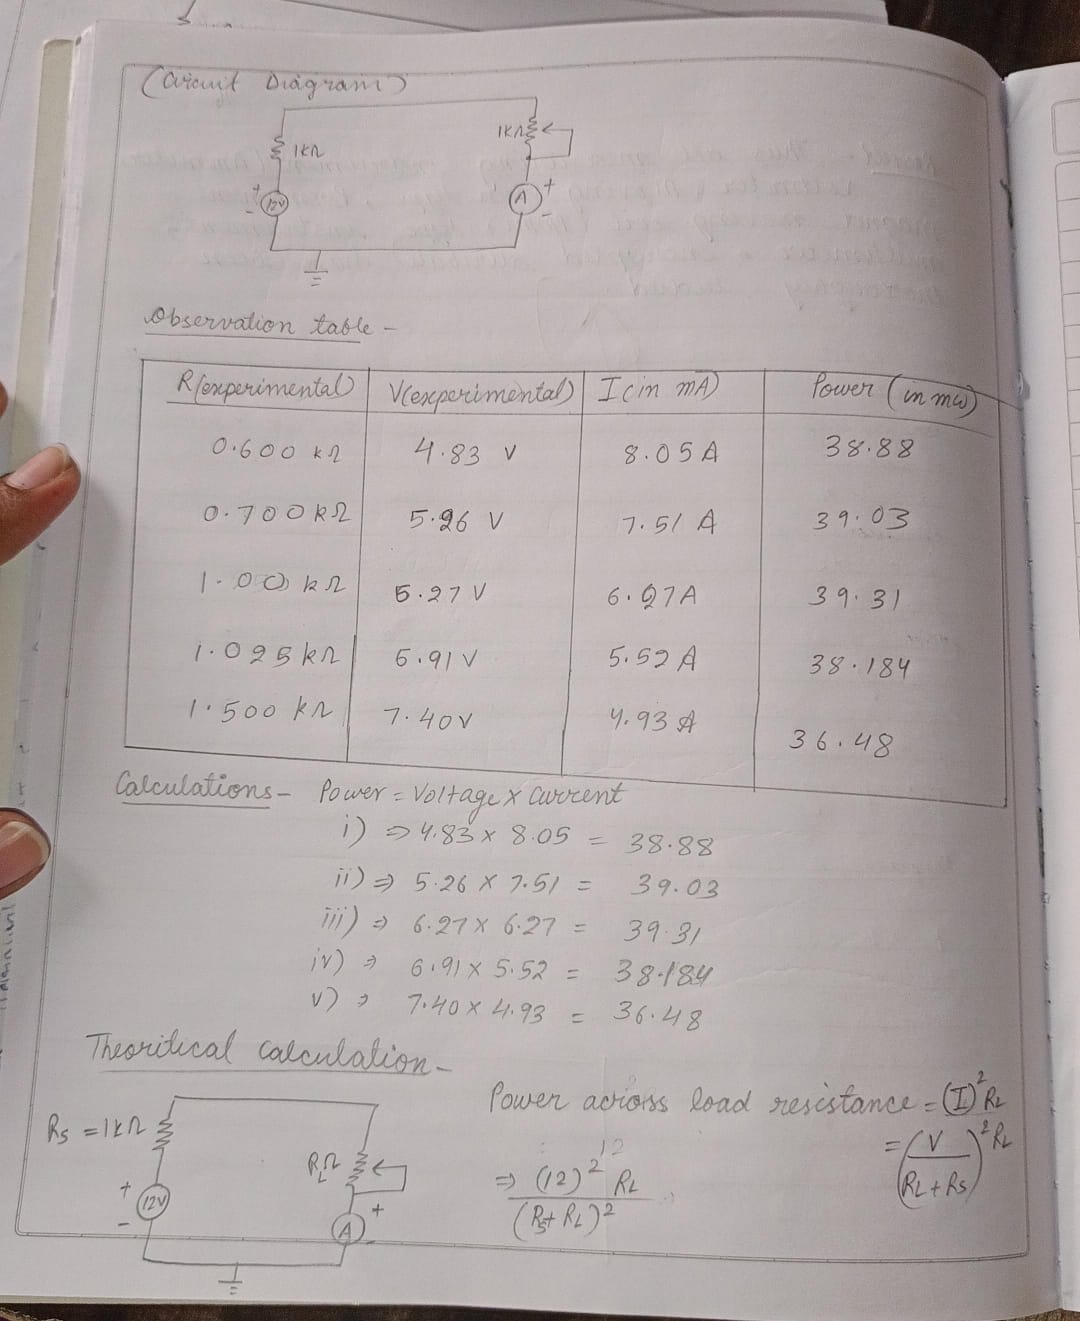 (Circuit Diagram)
1KΩ
1KΩ
+
12V
-
A
+
-
Observation table -
R(experimental) V(experimental) I (in mA) Power (in mw)
0.600 kΩ 4.83 V 8.05 A 38.88
0.700 kΩ 5.26 V 7.51 A 39.03
1.00 kΩ 6.27 V 6.27 A 39.31
1.025 kΩ 6.91 V 5.52 A 38.184
1.500 kΩ 7.40 V 4.93 A 36.48
Calculations - Power = Voltage x Current
i) ⇒ 4.83 x 8.05 = 38.88
ii) ⇒ 5.26 x 7.51 = 39.03
iii) ⇒ 6.27 x 6.27 = 39.31
iv) ⇒ 6.91 x 5.52 = 38.184
v) ⇒ 7.40 x 4.93 = 36.48
Theoritical calculation -
Power across load resistance = (I)² RL
= (V / RL + Rs)² RL
12
⇒ (12)² RL / (Rs + RL)²
Rs = 1kΩ
RLΩ
+
12V
-
A
+
-